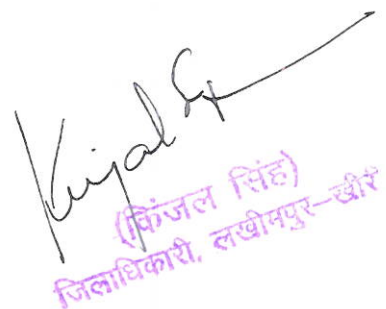 Kinjal Singh
(किंजल सिंह)
जिलाधिकारी, लखीमपुर–खीरी